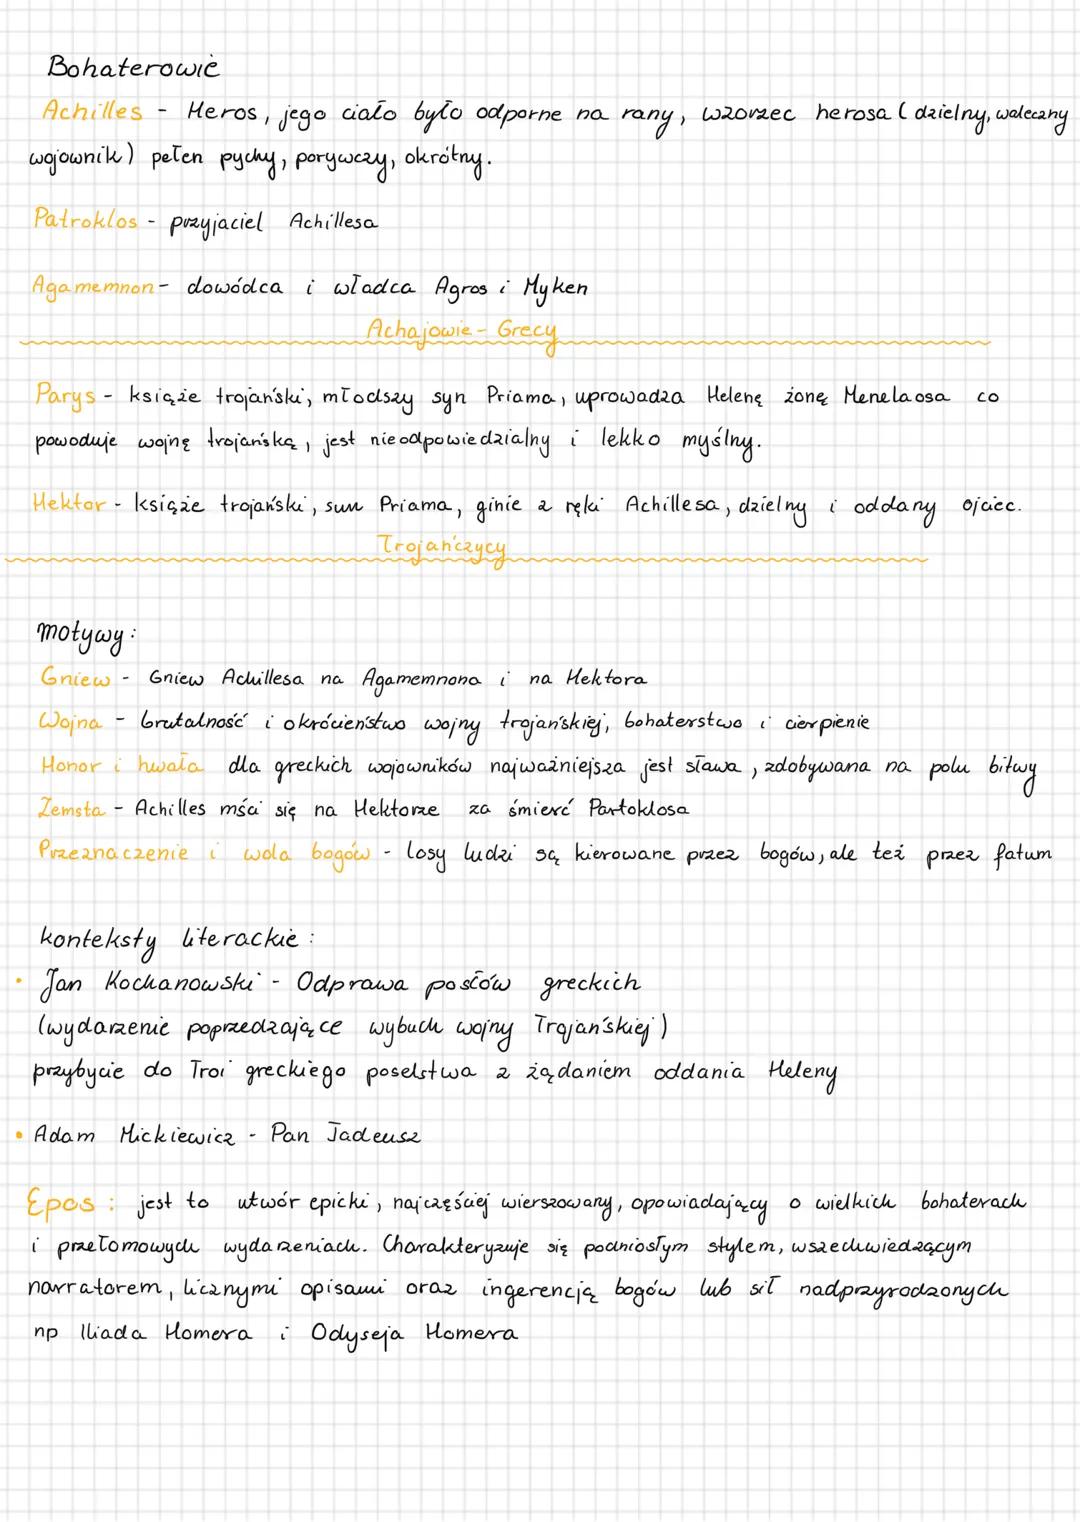 Bohaterowie
Achilles - Heros, jego ciało było odporne na rany, wzorzec herosa (dzielny, waleczny
wojownik) pełen pychy, porywczy, okrótny.
Patroklos - przyjaciel Achillesa
Agamemnon - dowódca i władca Agros i Myken
Achajowie - Grecy
Parys - książe trojański, młodszy syn Priama, uprowadza Helenę żonę Menelaosa co
powoduje wojnę trojańską, jest nieodpowiedzialny i lekko myślny.
Hektor - książe trojański, sun Priama, ginie z ręki Achillesa, dzielny i oddany ojciec.
Trojańczycy
motywy:
Gniew - Gniew Achillesa na Agamemnona i na Hektora
Wojna - brutalność i okrócieństwo wojny trojańskiej, bohaterstwo i cierpienie
Honor i hwała dla greckich wojowników najważniejsza jest sława, zdobywana na polu bitwy
Zemsta - Achilles mści się na Hektorze za śmierć Partoklosa
Przeznaczenie i wola bogów - losy ludzi są kierowane przez bogów, ale też przez fatum
konteksty literackie:
• Jan Kochanowski - Odprawa posłów greckich
(wydarzenie poprzedzające wybuch wojny Trojańskiej)
przybycie do Troi greckiego poselstwa z żądaniem oddania Heleny
• Adam Mickiewicz - Pan Tadeusz
Epos: jest to utwór epicki, najczęściej wierszowany, opowiadający o wielkich bohaterach
i przełomowych wydarzeniach. Charakteryzuje się podniosłym stylem, wszechwiedzącym
narratorem, licznymi opisami oraz ingerencją bogów lub sił nadprzyrodzonych
np Iliada Homera i Odyseja Homera